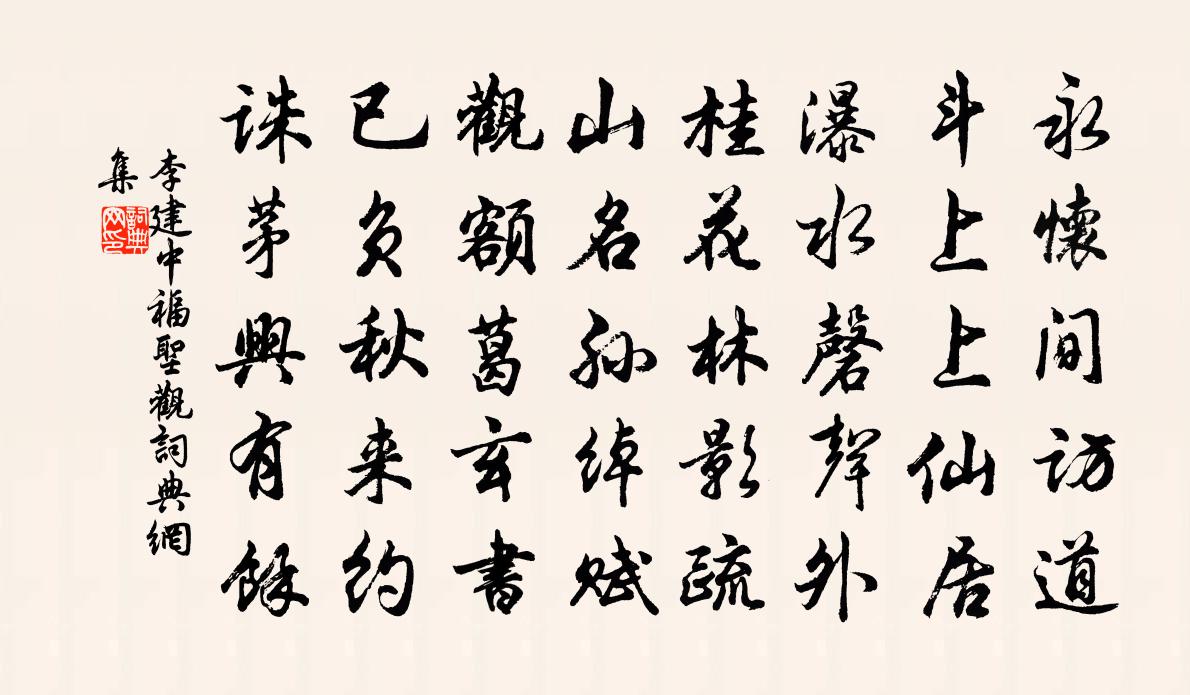 永懷閒訪道
斗上上仙居
瀑水磬聲外
桂花林影疏
山名孙綽賦
觀額葛玄書
已负秋来约
誅茅興有餘
李建中福聖觀詞典網
集
詞典
网印